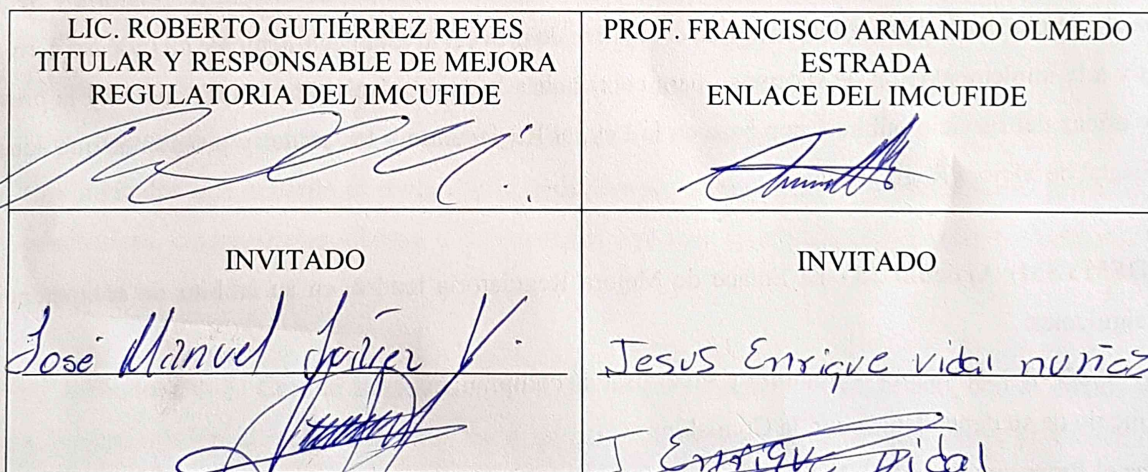 LIC. ROBERTO GUTIÉRREZ REYES
TITULAR Y RESPONSABLE DE MEJORA
REGULATORIA DEL IMCUFIDE
PROF. FRANCISCO ARMANDO OLMEDO
ESTRADA
ENLACE DEL IMCUFIDE
INVITADO
José Manuel V.
INVITADO
Jesus Enrique vidal nuñez
J Enrique Vidal